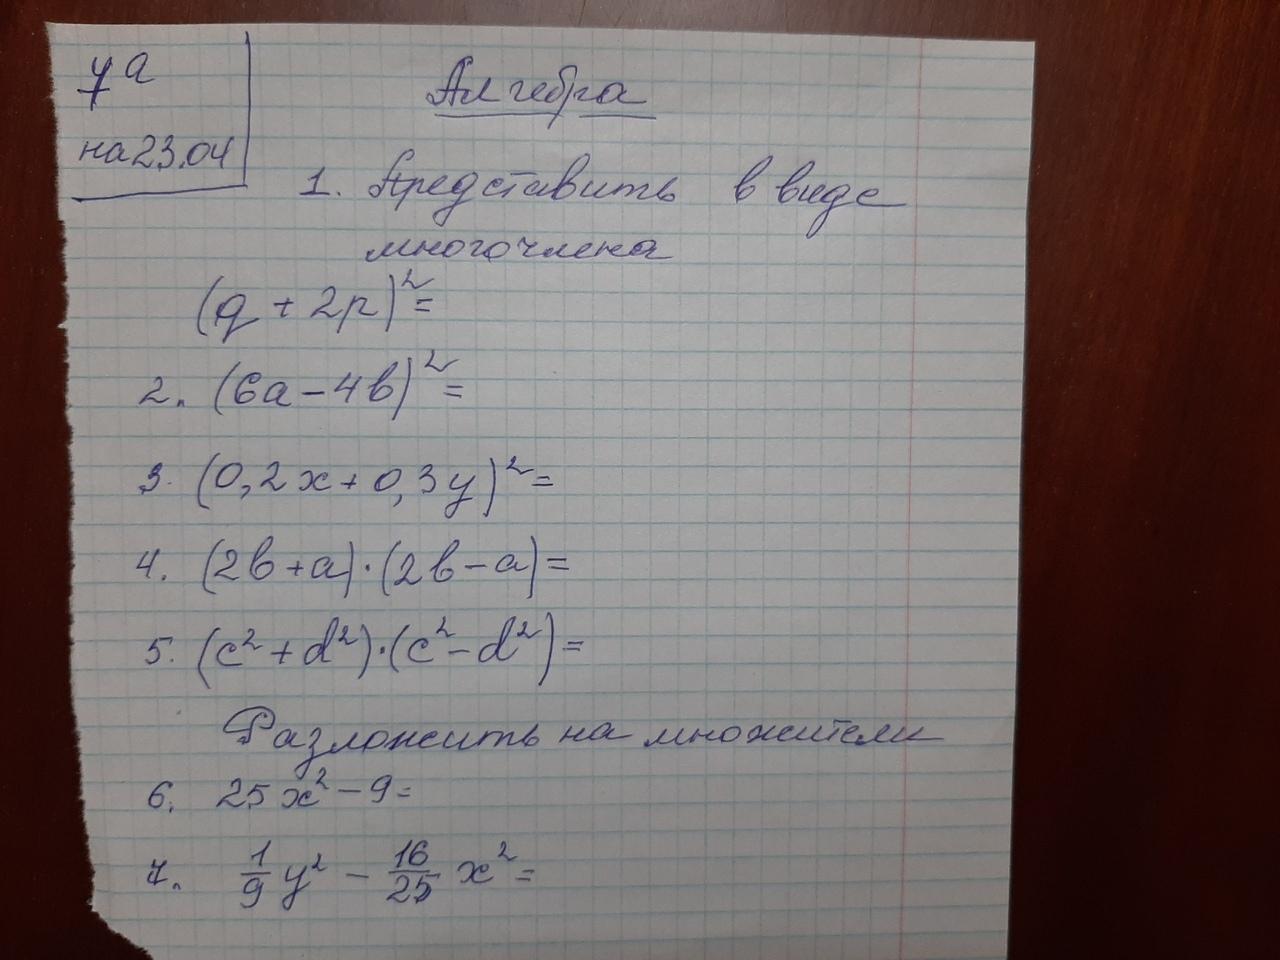 7а
на 23.04
Алгебра
1. Представить в виде
многочлена
(q + 2p)² =
2. (6a – 4b)² =
3. (0,2x + 0,3y)² =
4. (2b + a) · (2b – a) =
5. (c² + d²) · (c² – d²) =
Разложить на множители
6. 25x² – 9 =
7. 1/9 y² – 16/25 x² =